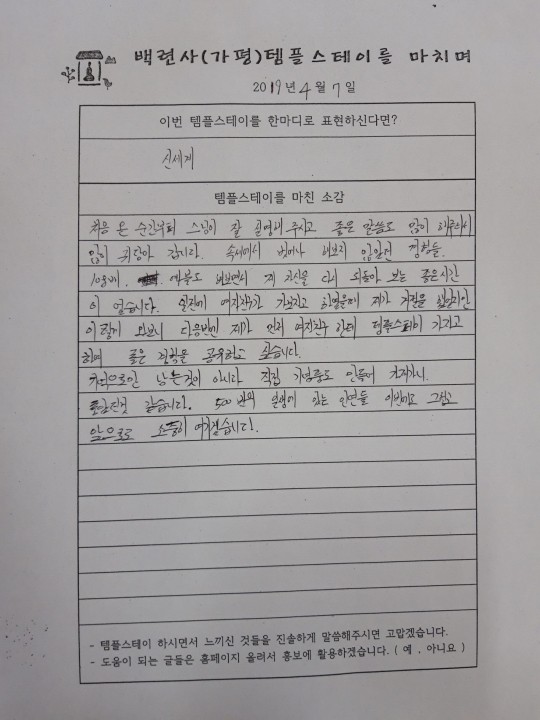 백련사(가평)템플스테이를 마치며
2019년 4월 7일
이번 템플스테이를 한마디로 표현하신다면?
신세계
템플스테이를 마친 소감
처음 온 순간부터 스님이 잘 설명해 주시고 좋은 말씀도 많이 해주셔서
많이 담아 갑니다. 속세에서 벗어나 해보지 않았던 경험들.
108배, 예불도 해보면서 제 자신을 다시 되돌아 보는 좋은시간
이 었습니다. 실은이 여자친구가 가보자고 하였을때 제가 거절을 했었지만
이렇게 와보니 다음번엔 제가 먼저 여자친구 한테 템플스테이 가자고
하며 좋은 경험을 공유하고 싶습니다.
기억으로만 남는것이 아니라 직접 기념품도 만들어 가져가니.
보람된것 같습니다. 500번의 일생에 있는 인연들 이번에도 그렇고
앞으로도 소중히 여기겠습니다.
- 템플스테이 하시면서 느끼신 것들을 진솔하게 말씀해주시면 고맙겠습니다.
- 도움이 되는 글들은 홈페이지 올려서 홍보에 활용하겠습니다. ( 예 , 아니요 )